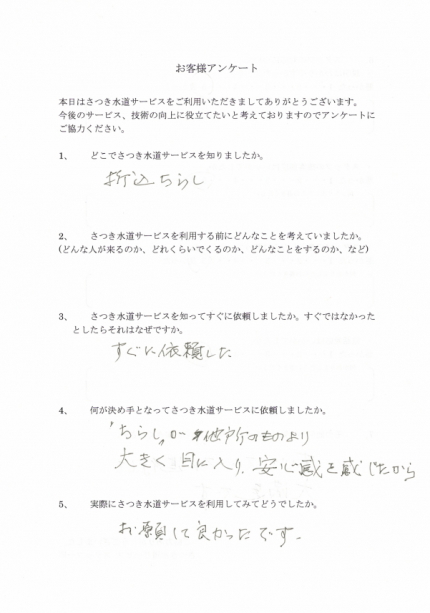 お客様アンケート
本日はさつき水道サービスをご利用いただきましてありがとうございます。
今後のサービス、技術の向上に役立てたいと考えておりますのでアンケートに
ご協力ください。
1、 どこでさつき水道サービスを知りましたか。
折込ちらし
2、 さつき水道サービスを利用する前にどんなことを考えていましたか。
(どんな人が来るのか、どれくらいでくるのか、どんなことをするのか、など)
3、 さつき水道サービスを知ってすぐに依頼しましたか。すぐではなかった
としたらそれはなぜですか。
すぐに依頼した
4、 何が決め手となってさつき水道サービスに依頼しましたか。
"ちらし"が 他所のものより
大きく 目に入り、安心感を感じたから
5、 実際にさつき水道サービスを利用してみてどうでしたか。
お願して良かったです。